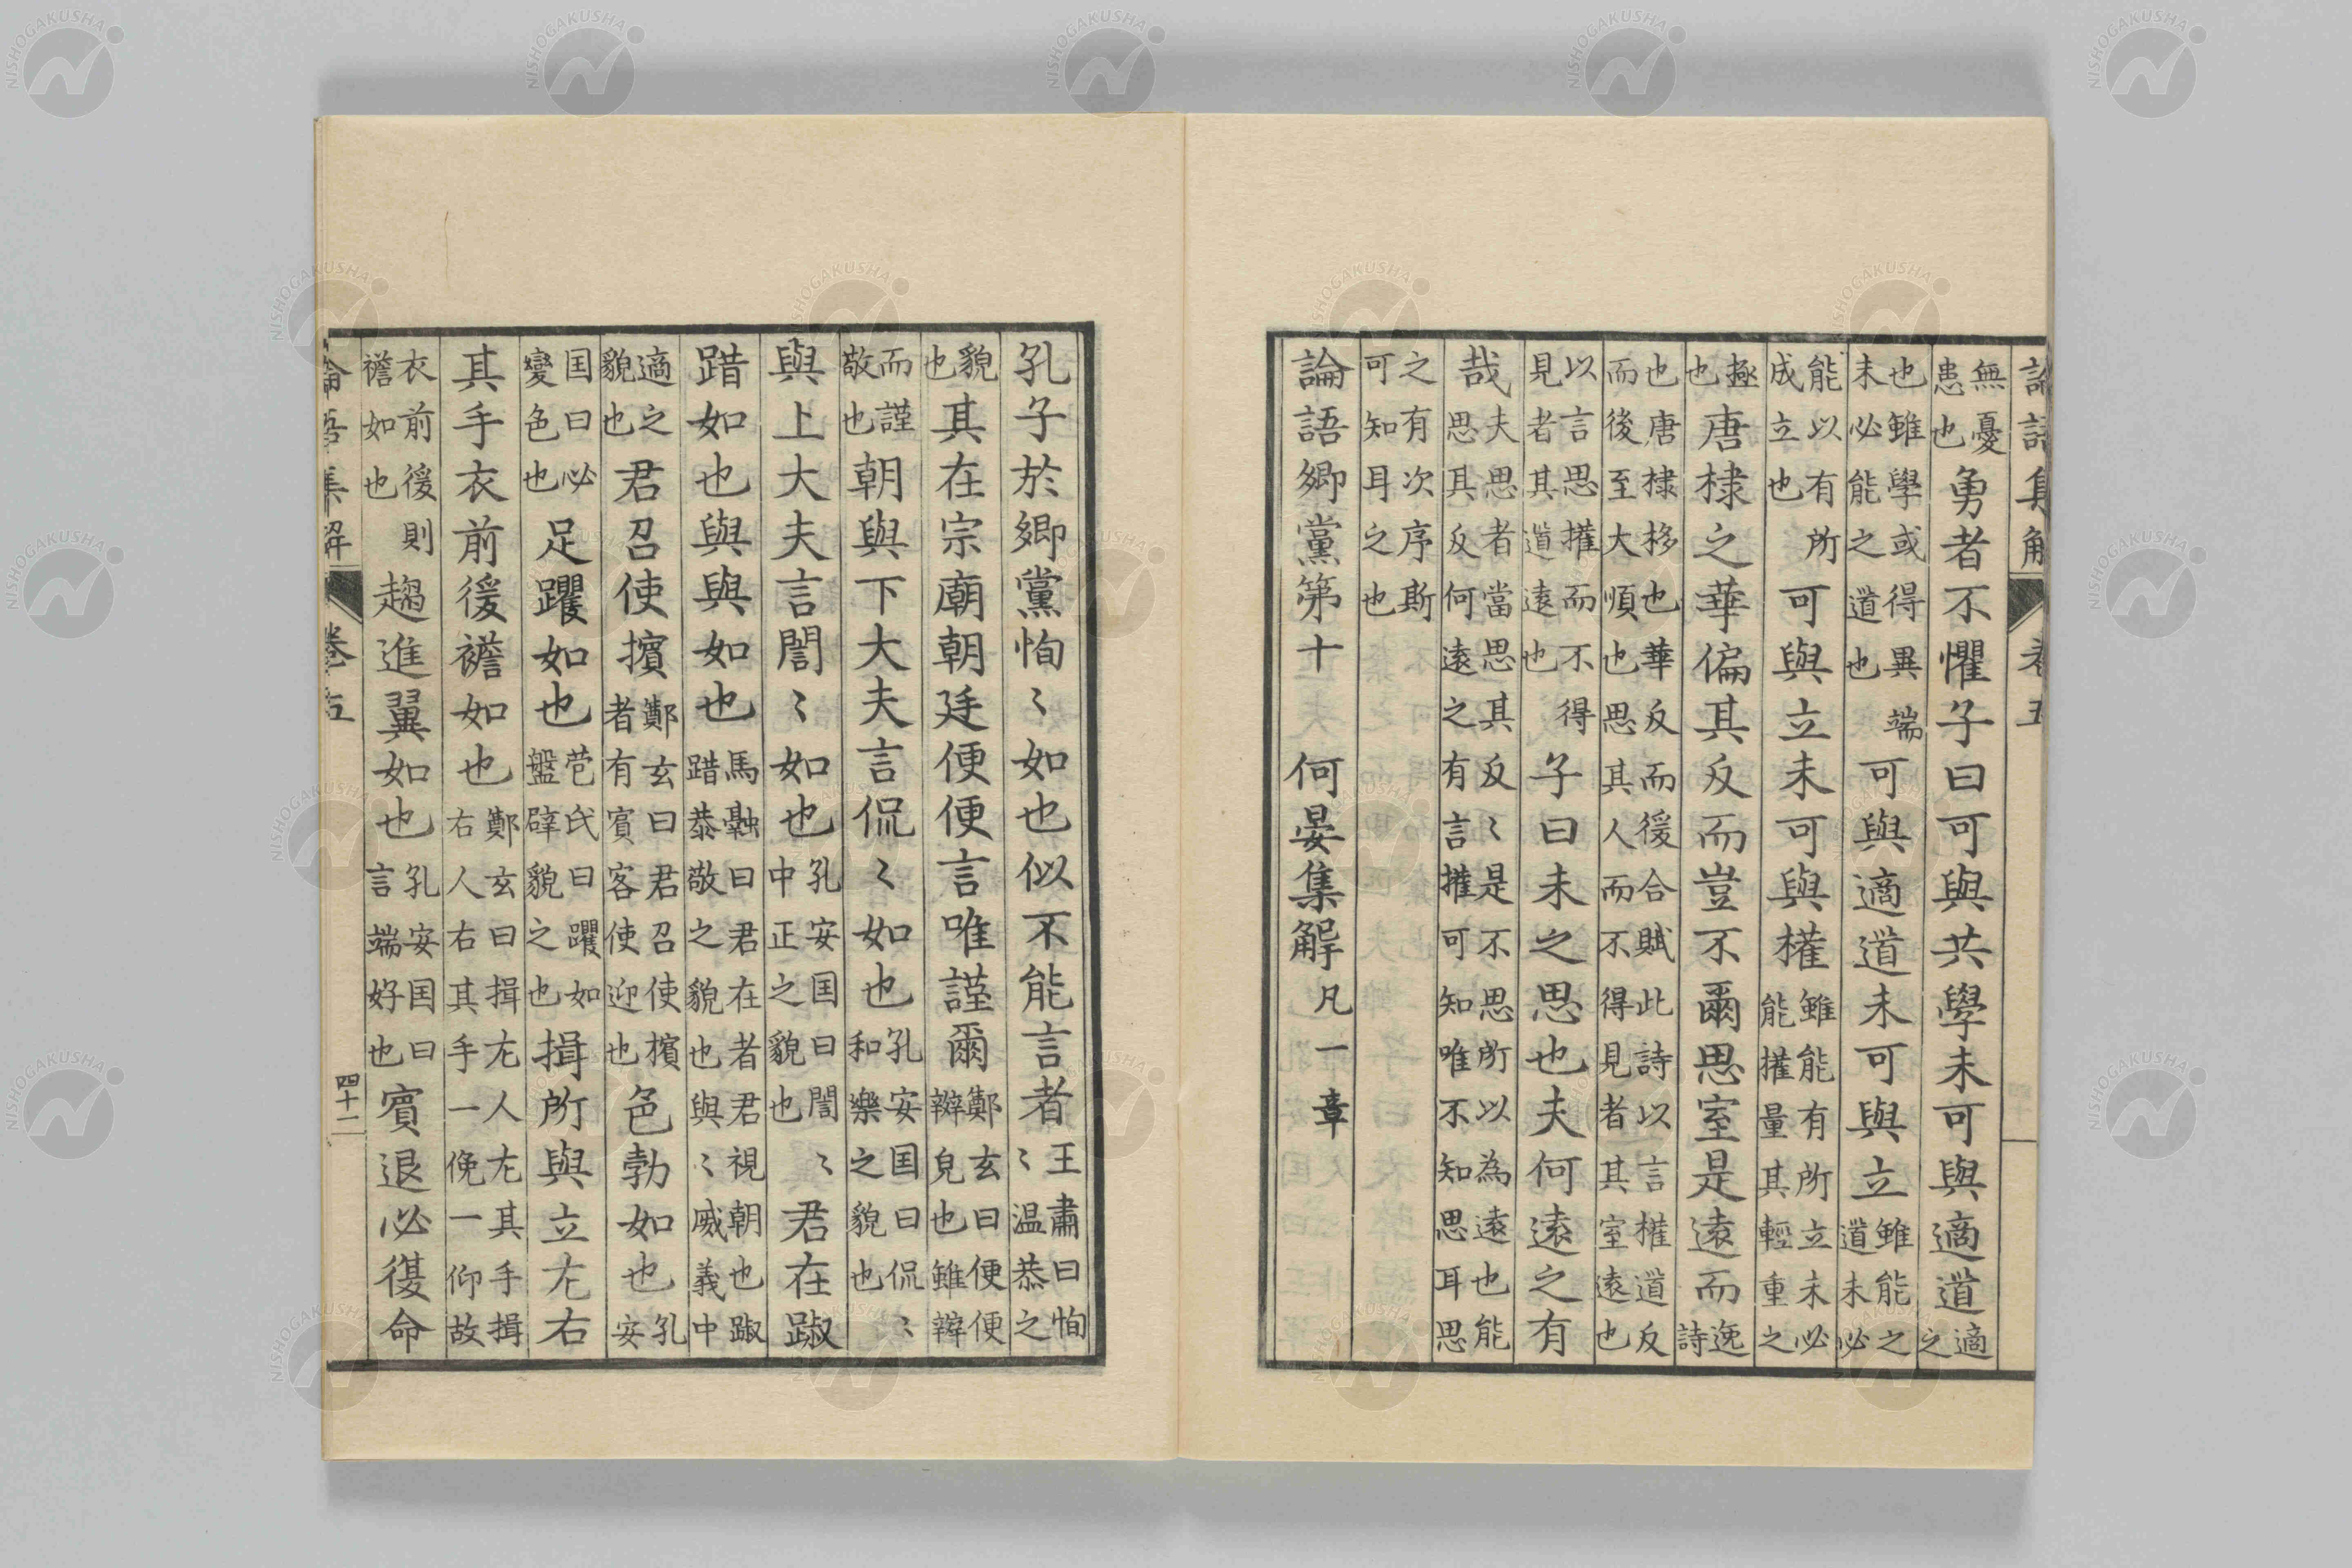 論語集解 卷五
無憂患也勇者不懼子曰可與共學未可與適道適之
也雖學或得異端未必能之道也可與適道未可與立雖能之道未必
能以有所成立也可與立未可與權雖能有所立未必能權量其輕重之
極也唐棣之華偏其反而豈不爾思室是遠而逸詩
也唐棣栘也華反而後合賦此詩以言權道反而後至大順也思其人而不得見者其室遠也
以言思權而不得見者其道遠也子曰未之思也夫何遠之有
哉夫思者當思其反反是不思所以為遠也能思其反何遠之有言權可知唯不知思耳思
之有次序斯可知耳之也
論語鄉黨第十 何晏集解 凡一章
孔子於鄉黨恂〻如也似不能言者王肅曰恂〻温恭之
貌也其在宗廟朝廷便便言唯謹爾鄭玄曰便便辯皃也雖辯
而謹敬也朝與下大夫言侃〻如也孔安国曰侃〻和樂之貌也
與上大夫言誾〻如也孔安国曰誾〻中正之貌也君在踧
踖如也與與如也馬融曰君在者君視朝也踧踖恭敬之貌也與〻威義中
適之貌也君召使擯鄭玄曰君召使擯者有賓客使迎也色勃如也孔安
国曰必變色也足躩如也苞氏曰躩如盤辟貌之也揖所與立左右
其手衣前後襜如也鄭玄曰揖左人左其手揖右人右其手一俛一仰故
衣前後則襜如也趨進翼如也孔安国曰言端好也賓退必復命
論語集解 卷五 四十二